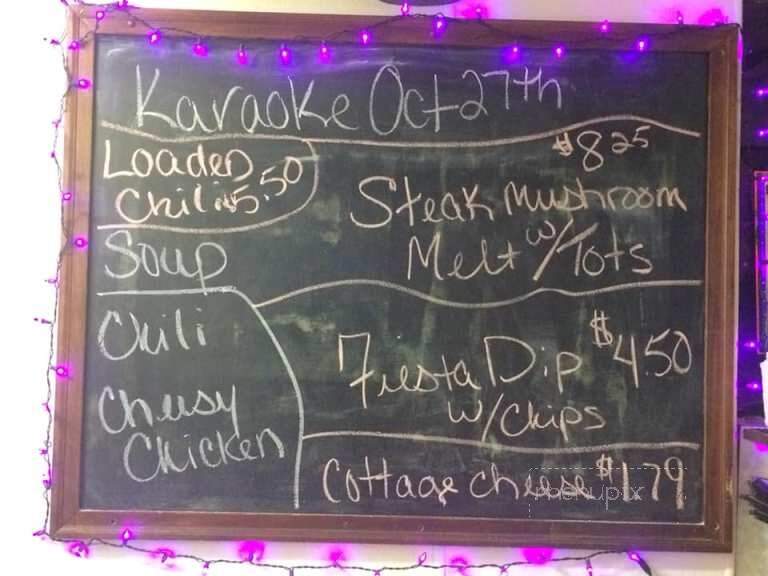 Karaoke Oct 27th
Loaded
Chili $5.50
Soup
Chili
Cheesy
Chicken
$8.25
Steak Mushroom
Melt w/Tots
Fiesta Dip $4.50
w/Chips
Cottage cheese $1.79
menupix